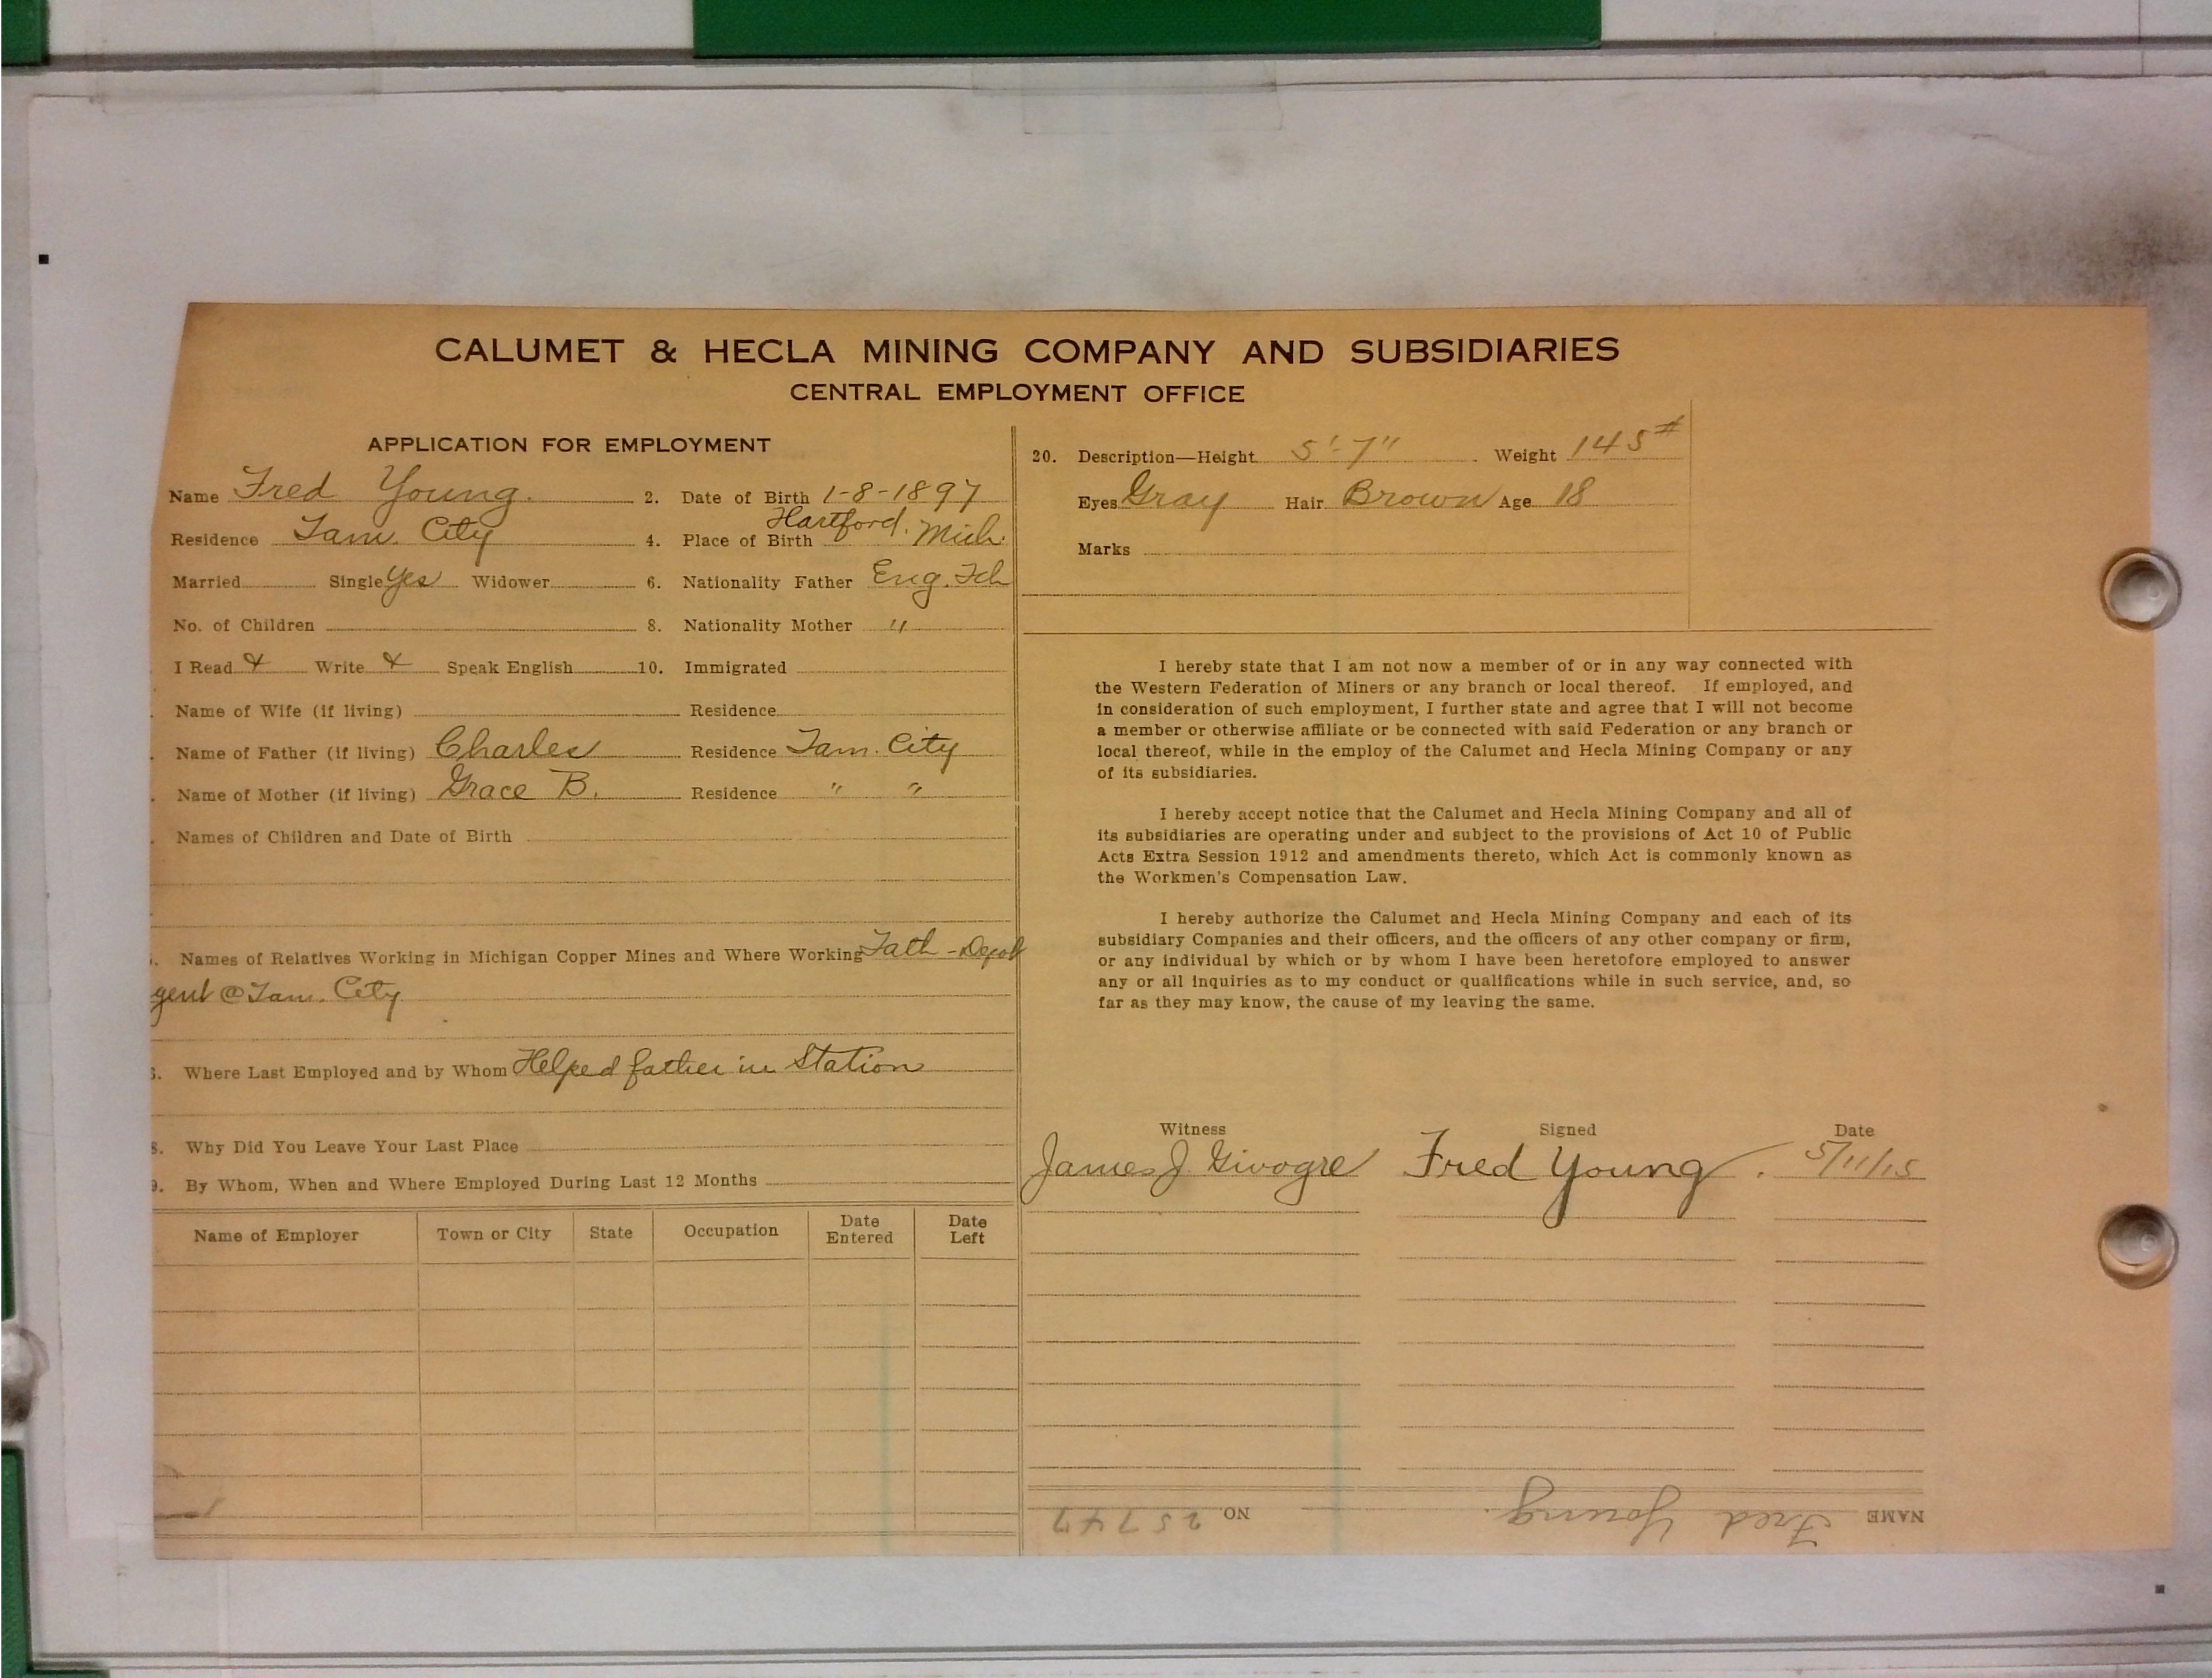 CALUMET & HECLA MINING COMPANY AND SUBSIDIARIES
CENTRAL EMPLOYMENT OFFICE
APPLICATION FOR EMPLOYMENT
Name Fred Young. 2. Date of Birth 1-8-1897
Residence Tam. City 4. Place of Birth Hartford. Mich.
Married Single Yes Widower 6. Nationality Father Eng. Fch
No. of Children 8. Nationality Mother "
I Read & Write & Speak English 10. Immigrated
Name of Wife (if living) Residence
Name of Father (if living) Charles Residence Tam. City
Name of Mother (if living) Grace B. Residence " "
Names of Children and Date of Birth
Names of Relatives Working in Michigan Copper Mines and Where Working Fath - Depot
gent @ Tam. City
Where Last Employed and by Whom Helped father in Station
8. Why Did You Leave Your Last Place
9. By Whom, When and Where Employed During Last 12 Months
Name of Employer Town or City State Occupation Date Entered Date Left
20. Description—Height 5'-7" Weight 145#
Eyes Gray Hair Brown Age 18
Marks
I hereby state that I am not now a member of or in any way connected with
the Western Federation of Miners or any branch or local thereof. If employed, and
in consideration of such employment, I further state and agree that I will not become
a member or otherwise affiliate or be connected with said Federation or any branch or
local thereof, while in the employ of the Calumet and Hecla Mining Company or any
of its subsidiaries.
I hereby accept notice that the Calumet and Hecla Mining Company and all of
its subsidiaries are operating under and subject to the provisions of Act 10 of Public
Acts Extra Session 1912 and amendments thereto, which Act is commonly known as
the Workmen's Compensation Law.
I hereby authorize the Calumet and Hecla Mining Company and each of its
subsidiary Companies and their officers, and the officers of any other company or firm,
or any individual by which or by whom I have been heretofore employed to answer
any or all inquiries as to my conduct or qualifications while in such service, and, so
far as they may know, the cause of my leaving the same.
Witness Signed Date
James J. Givogre Fred Young. 5/11/15
NAME Fred Young. NO. 25747